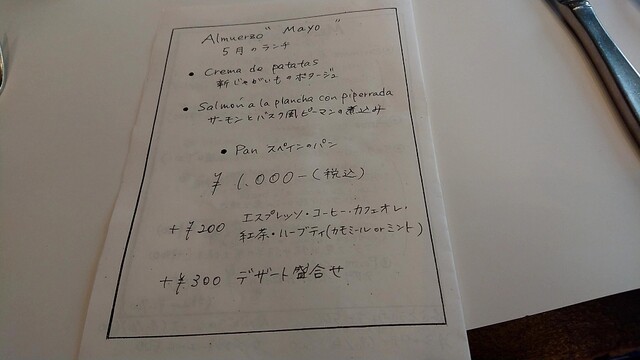 Almuerzo "Mayo"
5月のランチ
• Crema de patatas
新じゃがいものポタージュ
• Salmón a la plancha con piperrada
サーモンとバスク風ピーマンの煮込み
• Pan スペインのパン
¥1.000-(税込)
+¥200 エスプレッソ・コーヒー・カフェオレ・
紅茶・ハーブティ(カモミール or ミント)
+¥300 デザート盛合せ